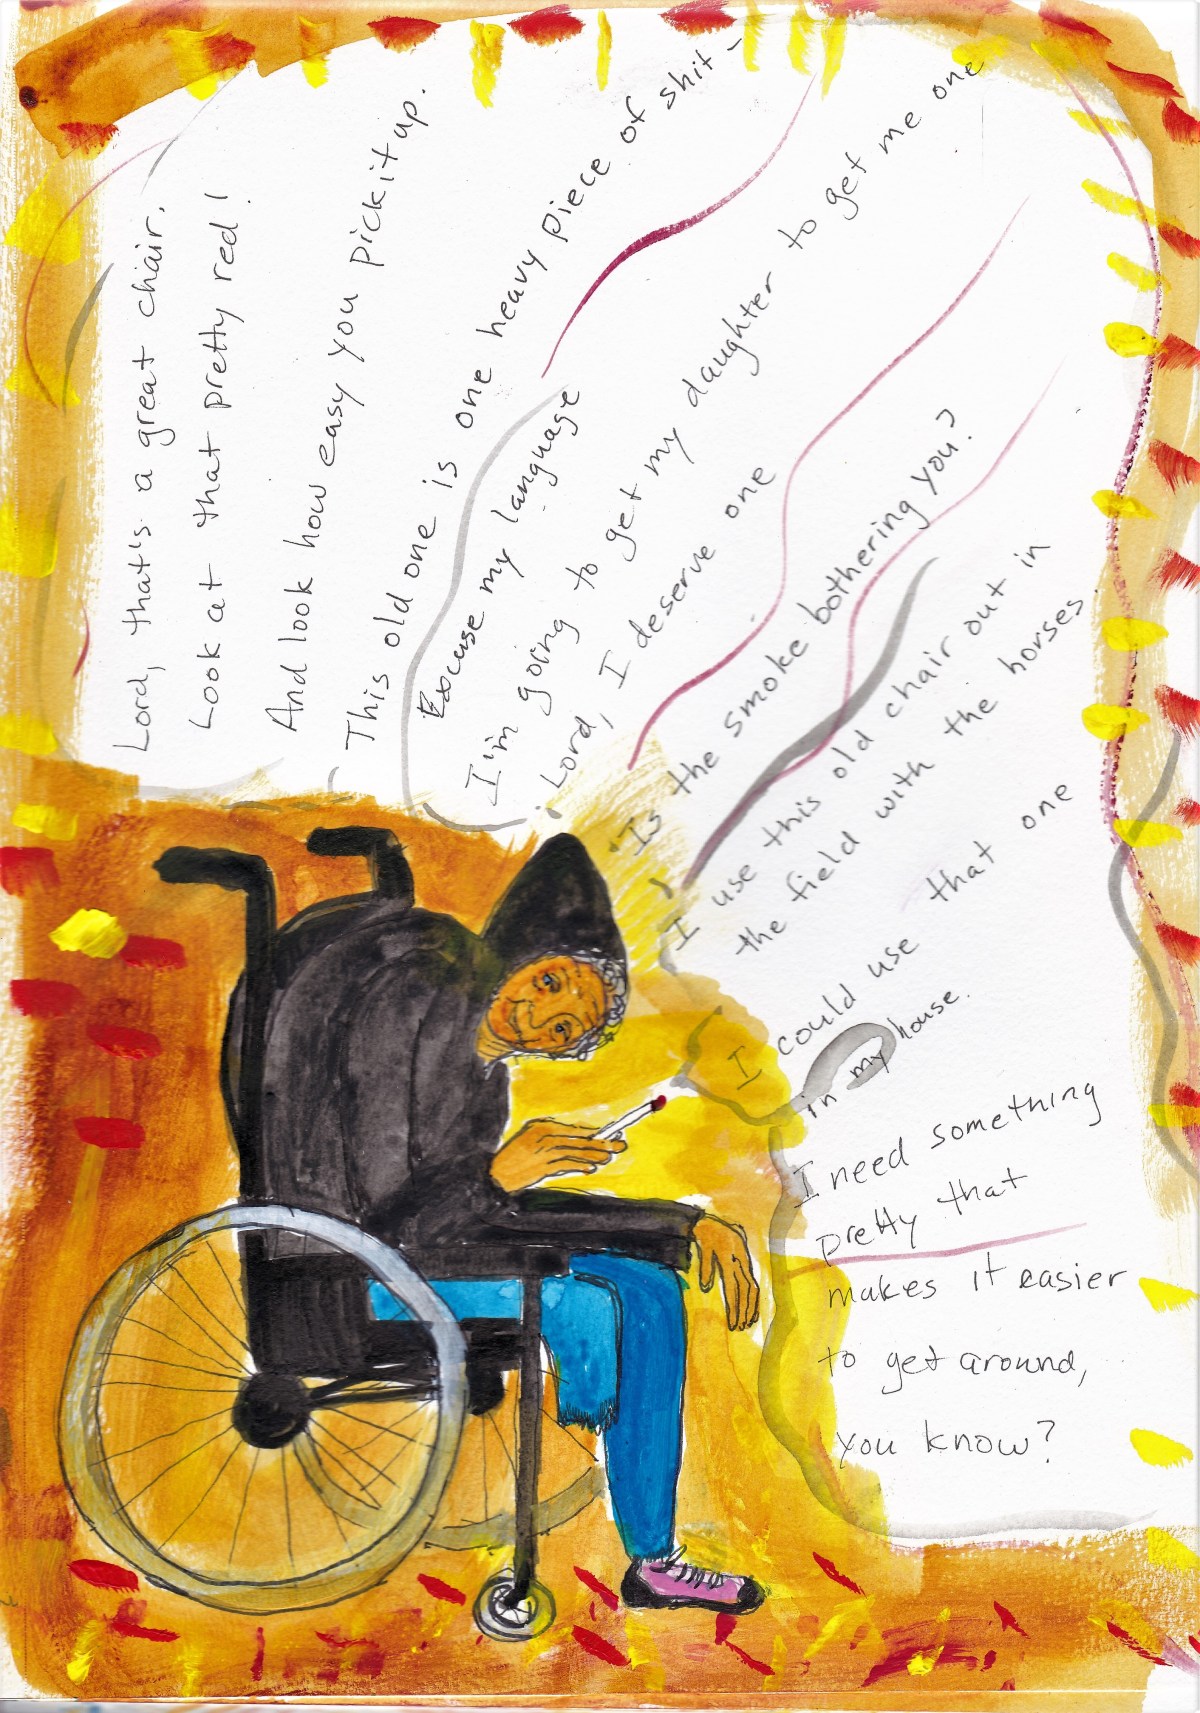 Lord, that's a great chair.
Look at that pretty red!
And look how easy you pick it up.
This old one is one heavy piece of shit -
Excuse my language
I'm going to get my daughter to get me one
Lord, I deserve one
Is the smoke bothering you?
I use this old chair out in
the field with the horses.
I could use that one
in my house.
I need something
pretty that
makes it easier
to get around,
you know?